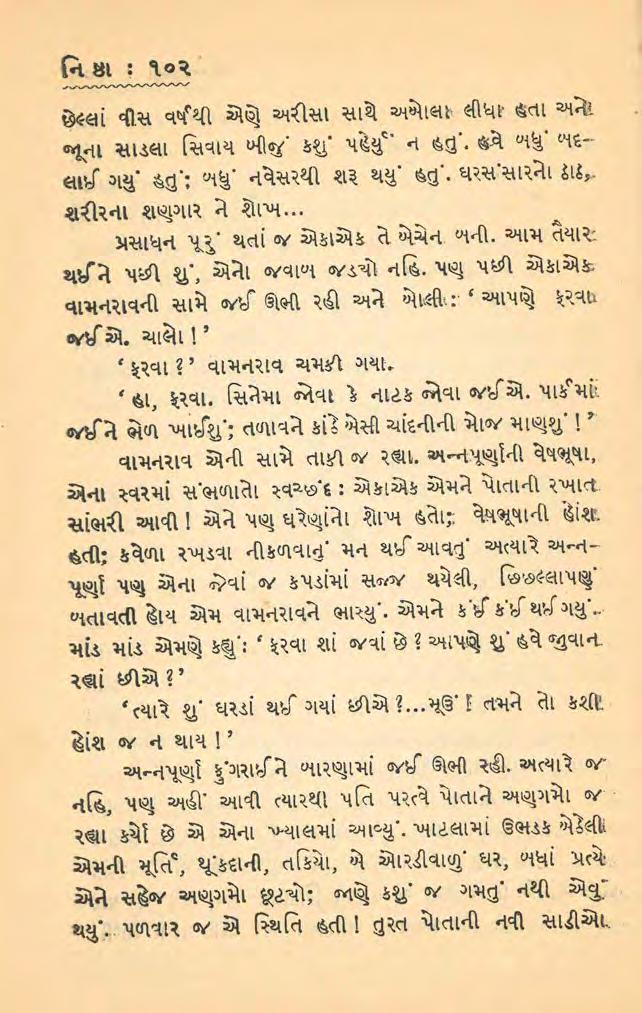 નિષ્ઠા : ૧૦૨
છેલ્લાં વીસ વર્ષથી એણે અરીસા સાથે અબોલા લીધા હતા અને
જૂના સાડલા સિવાય બીજું કશું પહેર્યું ન હતું. હવે બધું બદ-
લાઈ ગયું હતું; બધું નવેસરથી શરૂ થયું હતું. ઘરસંસારનો ઠાઠ,
શરીરના શણગાર ને શોખ...
પ્રસાધન પૂરું થતાં જ એકાએક તે બેચેન બની. આમ તૈયાર
થઈને પછી શું, એનો જવાબ જડ્યો નહિ. પણ પછી એકાએક
વામનરાવની સામે જઈ ઊભી રહી અને બોલી : ‘ આપણે ફરવા
જઈએ. ચાલો ! ’
‘ ફરવા ? ’ વામનરાવ ચમકી ગયા.
‘ હા, ફરવા. સિનેમા જોવા કે નાટક જોવા જઈએ. પાર્કમાં
જઈને ભેળ ખાઈશું; તળાવને કાંઠે બેસી ચાંદનીની મોજ માણશું ! ’
વામનરાવ એની સામે તાકી જ રહ્યા. અન્નપૂર્ણાની વેષભૂષા,
એના સ્વરમાં સંભળાતો સ્વચ્છંદ : એકાએક એમને પોતાની રખાત
સાંભરી આવી ! એને પણ ઘરેણાંનો શોખ હતો; વેષભૂષાની હોંશ
હતી; કવેળા રખડવા નીકળવાનું મન થઈ આવતું અત્યારે અન્ન-
પૂર્ણા પણ એના જેવાં જ કપડાંમાં સજ્જ થયેલી, છિછલ્લાપણું
બતાવતી હોય એમ વામનરાવને ભાસ્યું. એમને કંઈ કંઈ થઈ ગયું.
માંડ માંડ એમણે કહ્યું : ‘ ફરવા શાં જવાં છે ? આપણે શું હવે જુવાન
રહ્યાં છીએ ? ’
‘ ત્યારે શું ઘરડાં થઈ ગયાં છીએ ?...મૂઉં ! તમને તો કશી
હોંશ જ ન થાય ! ’
અન્નપૂર્ણા ફુંગરાઈને બારણામાં જઈ ઊભી રહી. અત્યારે જ
નહિ, પણ અહીં આવી ત્યારથી પતિ પરત્વે પોતાને અણગમો જ
રહ્યા કર્યો છે એ એના ખ્યાલમાં આવ્યું. ખાટલામાં ઉભડક બેઠેલી
એમની મૂર્તિ, થૂંકદાની, તકિયો, એ ઓરડીવાળું ઘર, બધાં પ્રત્યે
એને સહેજ અણગમો છૂટ્યો; જાણે કશું જ ગમતું નથી એવું
થયું. પળવાર જ એ સ્થિતિ હતી ! તુરત પોતાની નવી સાડીઓ.